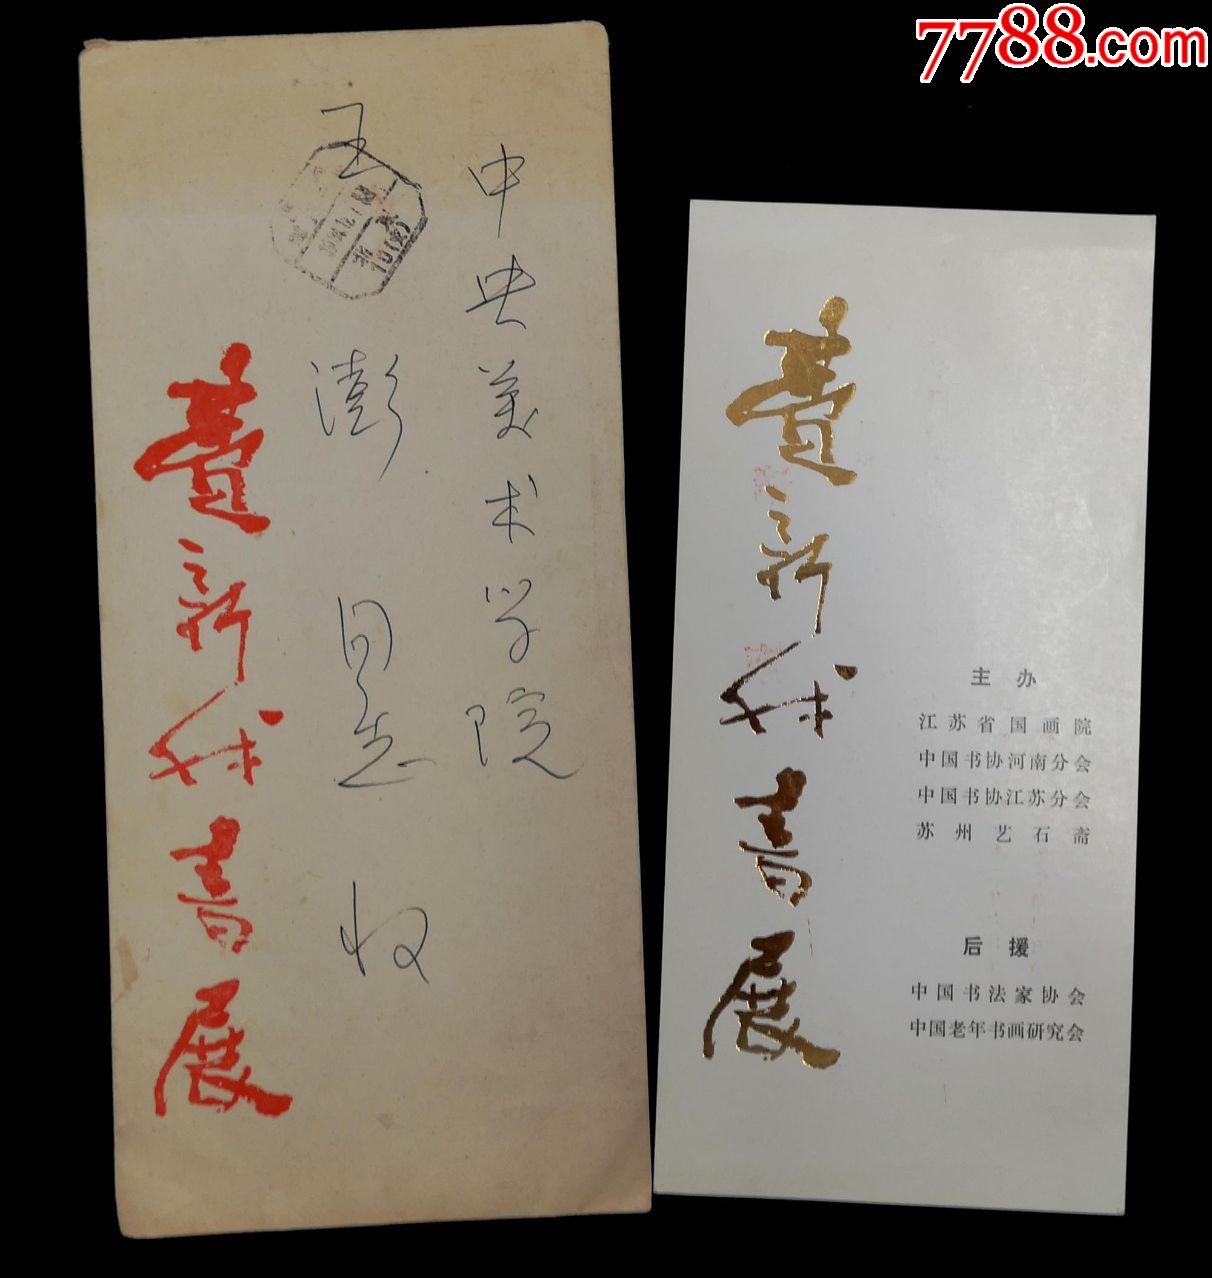 7788.com
中央美术学院
王澎同志收
书展
书展
主办
江苏省国画院
中国书协河南分会
中国书协江苏分会
苏州艺石斋
后援
中国书法家协会
中国老年书画研究会